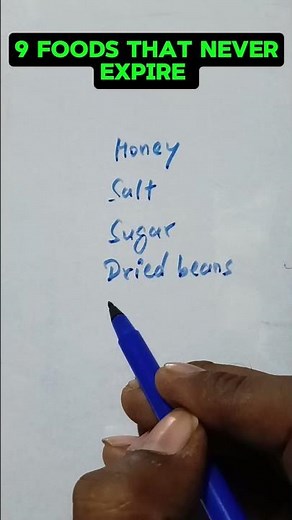 9 FOODS THAT NEVER
EXPIRE
Honey
Salt
Sugar
Dried beans